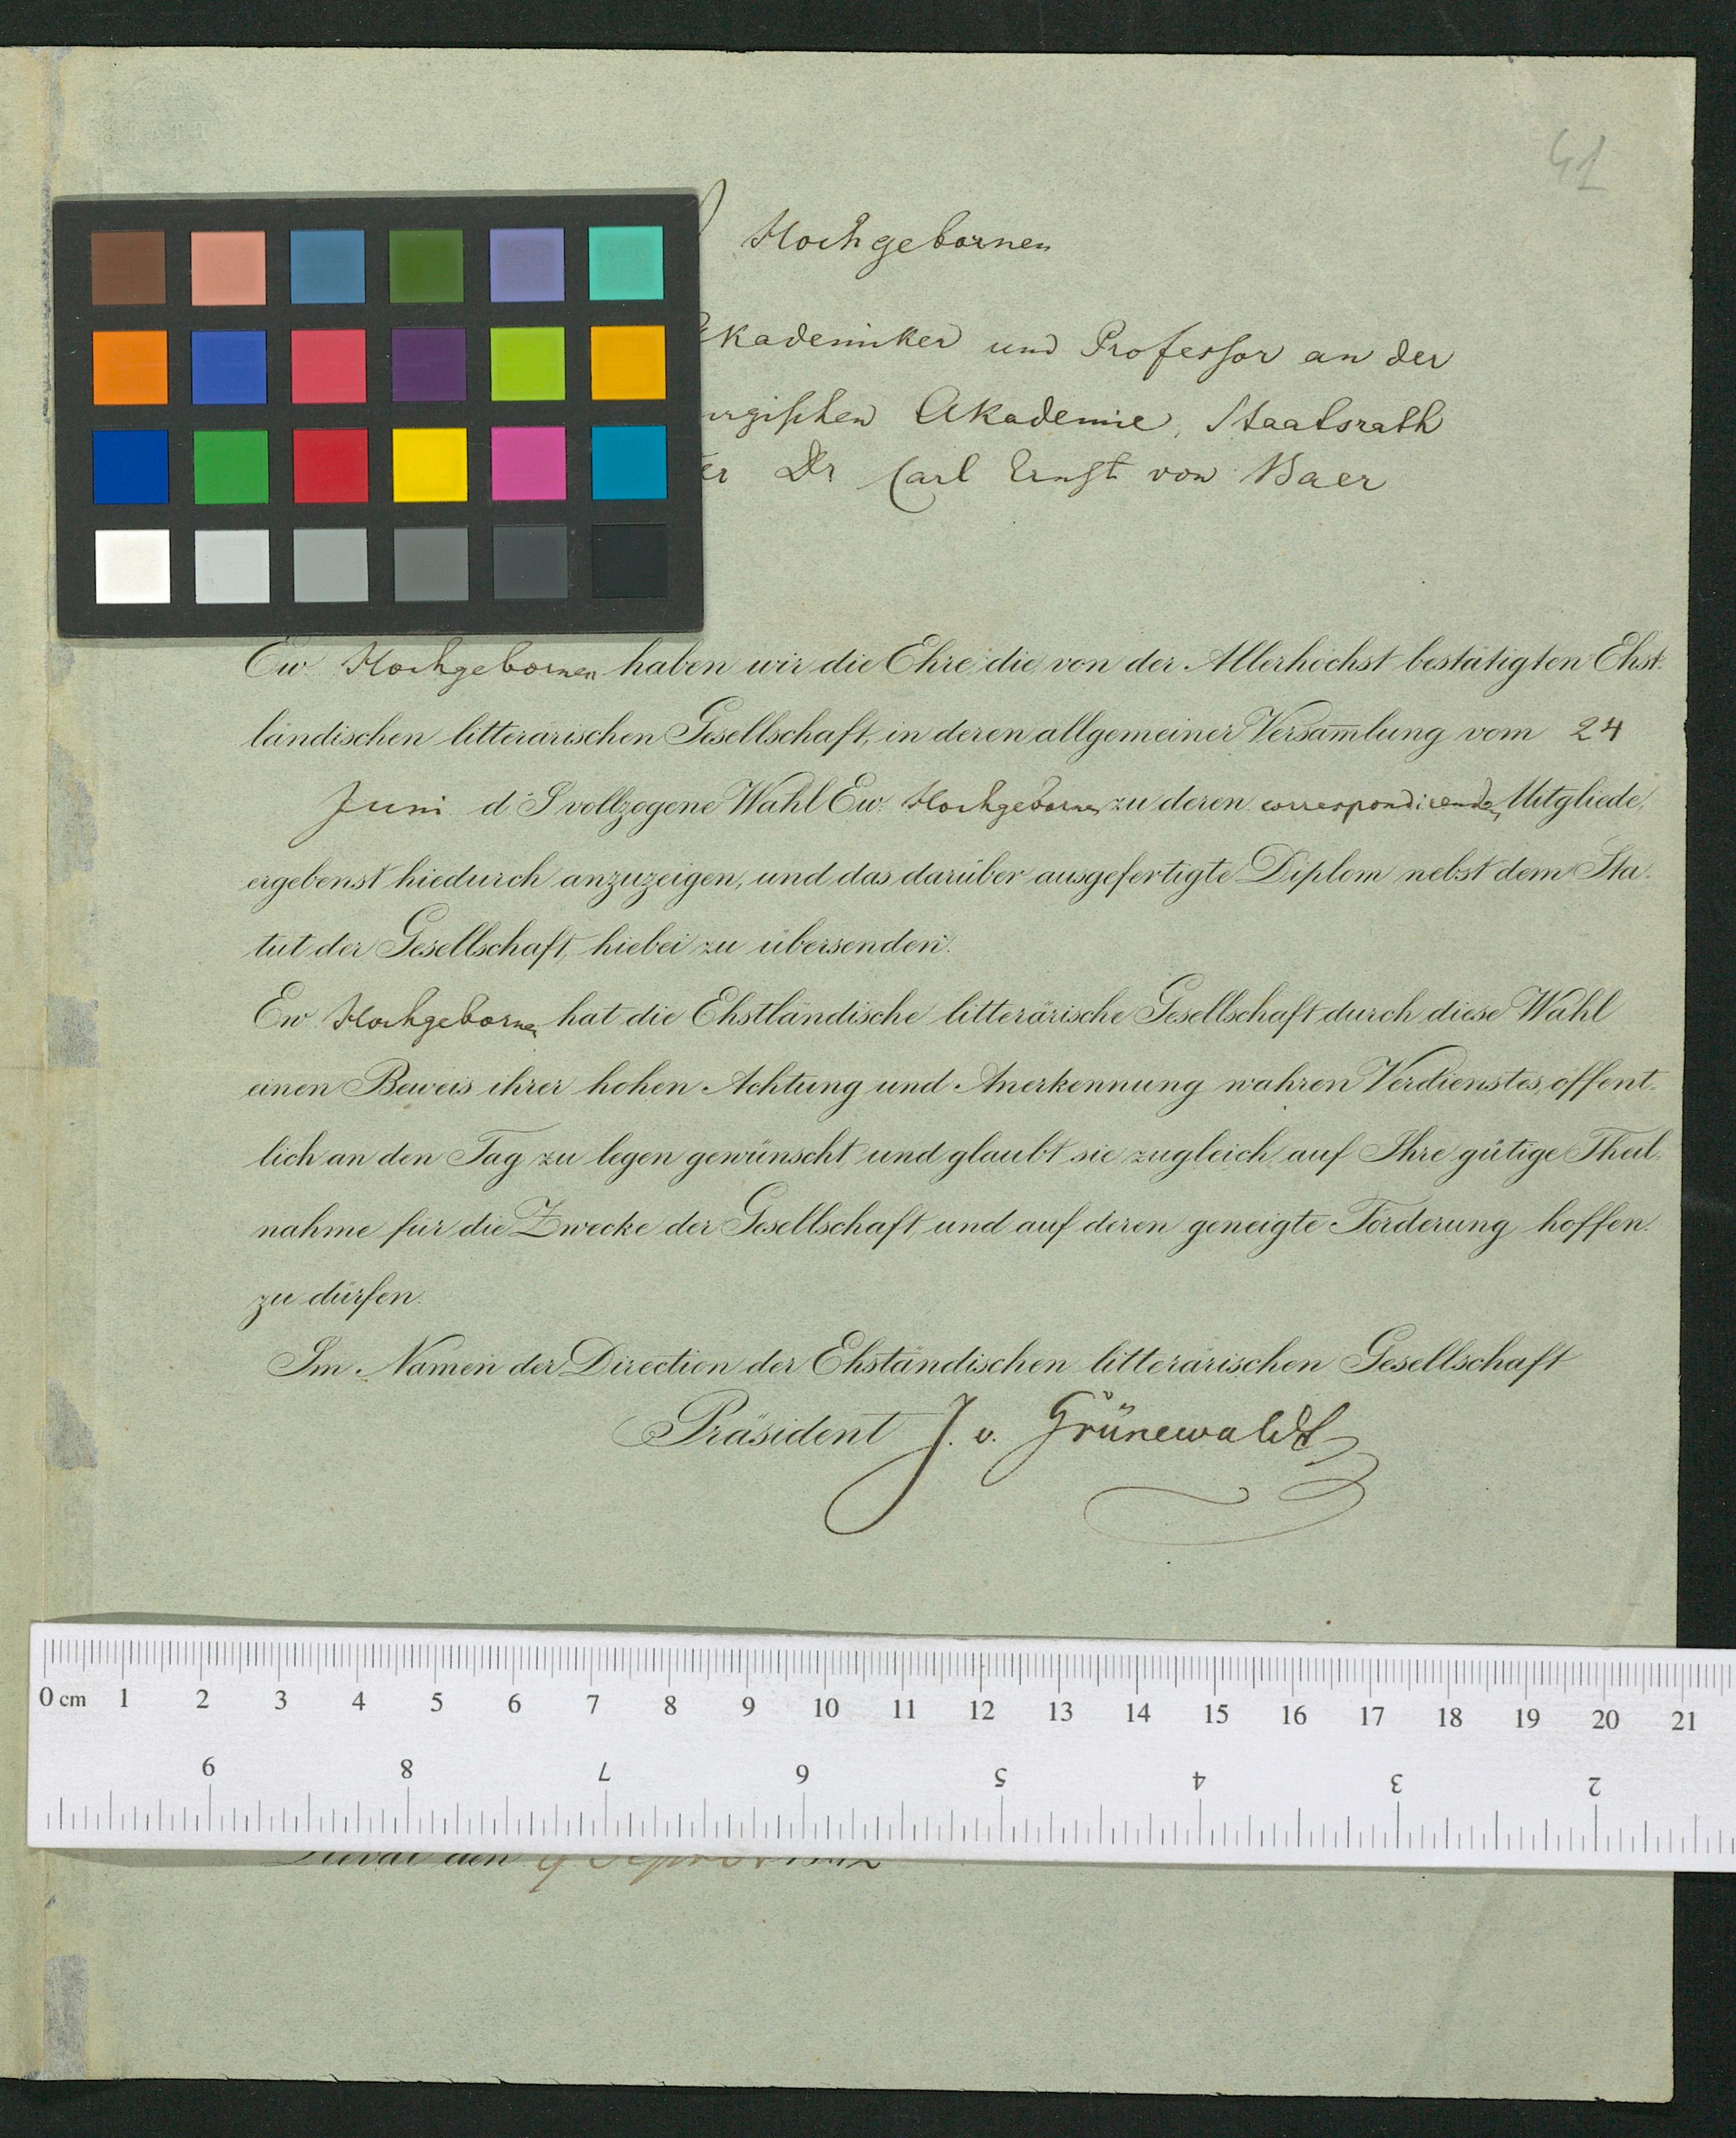 41
Hochgebornen
Akademiker und Professor an der
Akademie, Staatsrath
Dr Carl Ernst von Baer
Ew. Hochgebornen haben wir die Ehre, die von der Allerhöchst bestätigten Ehst-
ländischen litterärischen Gesellschaft, in deren allgemeiner Versam̅lung vom 24
Juni d. J. vollzogene Wahl Ew. Hochgebornen zu deren correspondirenden Mitgliede,
ergebenst hiedurch anzuzeigen, und das darüber ausgefertigte Diplom nebst dem Sta-
tut der Gesellschaft, hiebei zu übersenden.
Ew. Hochgebornen hat die Ehstländische litterärische Gesellschaft durch diese Wahl
einen Beweis ihrer hohen Achtung und Anerkennung wahren Verdienstes, öffent-
lich an den Tag zu legen gewünscht, und glaubt sie zugleich auf Ihre gütige Theil-
nahme für die Zwecke der Gesellschaft, und auf deren geneigte Förderung hoffen
zu dürfen.
Im Namen der Direction der Ehständischen litterärischen Gesellschaft
Präsident J. v. Grünewaldt
0 cm 1 2 3 4 5 6 7 8 9 10 11 12 13 14 15 16 17 18 19 20 21
9 8 7 6 5 4 3 2
Reval den